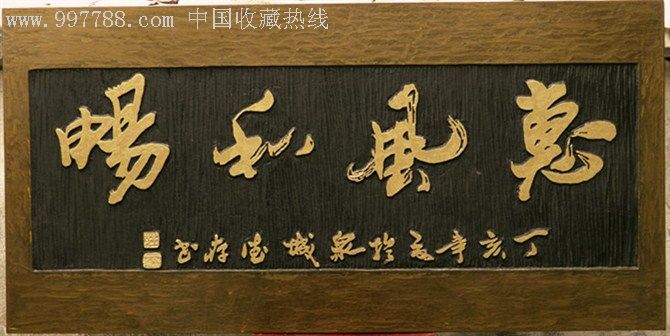 www.997788.com 中国收藏热线
惠风和畅
丁亥年夏於泉城